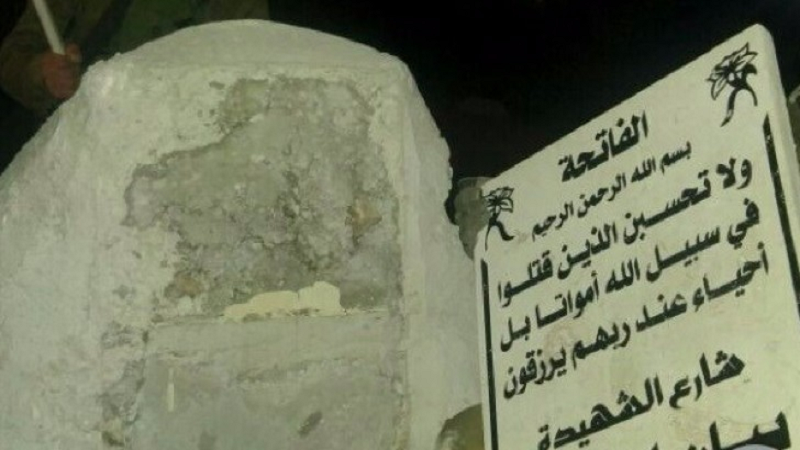 الفاتحة
بسم الله الرحمن الرحيم
ولا تحسبن الذين قتلوا
في سبيل الله أمواتا بل
أحياء عند ربهم يرزقون
شارع الشهيدة